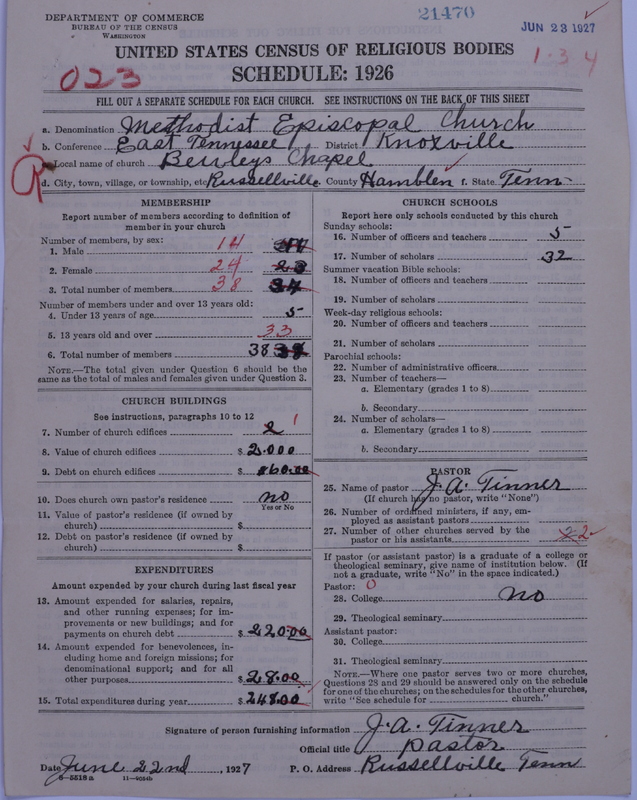 DEPARTMENT OF COMMERCE
BUREAU OF THE CENSUS
WASHINGTON
21470
JUN 23 1927
UNITED STATES CENSUS OF RELIGIOUS BODIES
1-34
SCHEDULE: 1926
023
FILL OUT A SEPARATE SCHEDULE FOR EACH CHURCH. SEE INSTRUCTIONS ON THE BACK OF THIS SHEET
a. Denomination Methodist Episcopal Church
b. Conference East Tennessee District Knoxville
c. Local name of church Bewleys Chapel
d. City, town, village, or township, etc Russellville County Hamblen f. State Tenn
MEMBERSHIP
Report number of members according to definition of
member in your church
Number of members, by sex:
1. Male 14
2. Female 24 23
3. Total number of members 38 37
Number of members under and over 13 years old:
4. Under 13 years of age 5
5. 13 years old and over 33
6. Total number of members 38
NOTE.—The total given under Question 6 should be the
same as the total of males and females given under Question 3.
CHURCH BUILDINGS
See instructions, paragraphs 10 to 12
7. Number of church edifices 2 1
8. Value of church edifices $ 2.000
9. Debt on church edifices $ 60.00
10. Does church own pastor's residence no
Yes or No
11. Value of pastor's residence (if owned by
church) $
12. Debt on pastor's residence (if owned by
church) $
EXPENDITURES
Amount expended by your church during last fiscal year
13. Amount expended for salaries, repairs,
and other running expenses; for im-
provements or new buildings; and for
payments on church debt $ 220.00
14. Amount expended for benevolences, in-
cluding home and foreign missions; for
denominational support; and for all
other purposes $ 28.00
15. Total expenditures during year $ 248.00
CHURCH SCHOOLS
Report here only schools conducted by this church
Sunday schools:
16. Number of officers and teachers 5
17. Number of scholars 32
Summer vacation Bible schools:
18. Number of officers and teachers
19. Number of scholars
Week-day religious schools:
20. Number of officers and teachers
21. Number of scholars
Parochial schools:
22. Number of administrative officers
23. Number of teachers—
a. Elementary (grades 1 to 8)
b. Secondary
24. Number of scholars—
a. Elementary (grades 1 to 8)
b. Secondary
PASTOR
25. Name of pastor J. A. Tinner
(If church has no pastor, write "None")
26. Number of ordained ministers, if any, em-
ployed as assistant pastors
27. Number of other churches served by the
pastor or his assistants 2
If pastor (or assistant pastor) is a graduate of a college or
theological seminary, give name of institution below. (If
not a graduate, write "No" in the space indicated.)
Pastor: 0
28. College no
29. Theological seminary
Assistant pastor:
30. College
31. Theological seminary
NOTE.—Where one pastor serves two or more churches,
Questions 28 and 29 should be answered only on the schedule
for one of the churches; on the schedules for the other churches,
write "See schedule for church."
Signature of person furnishing information J. A. Tinner
Official title Pastor
Date June 22nd, 1927 P. O. Address Russellville Tenn
8-5518a 11-9054b